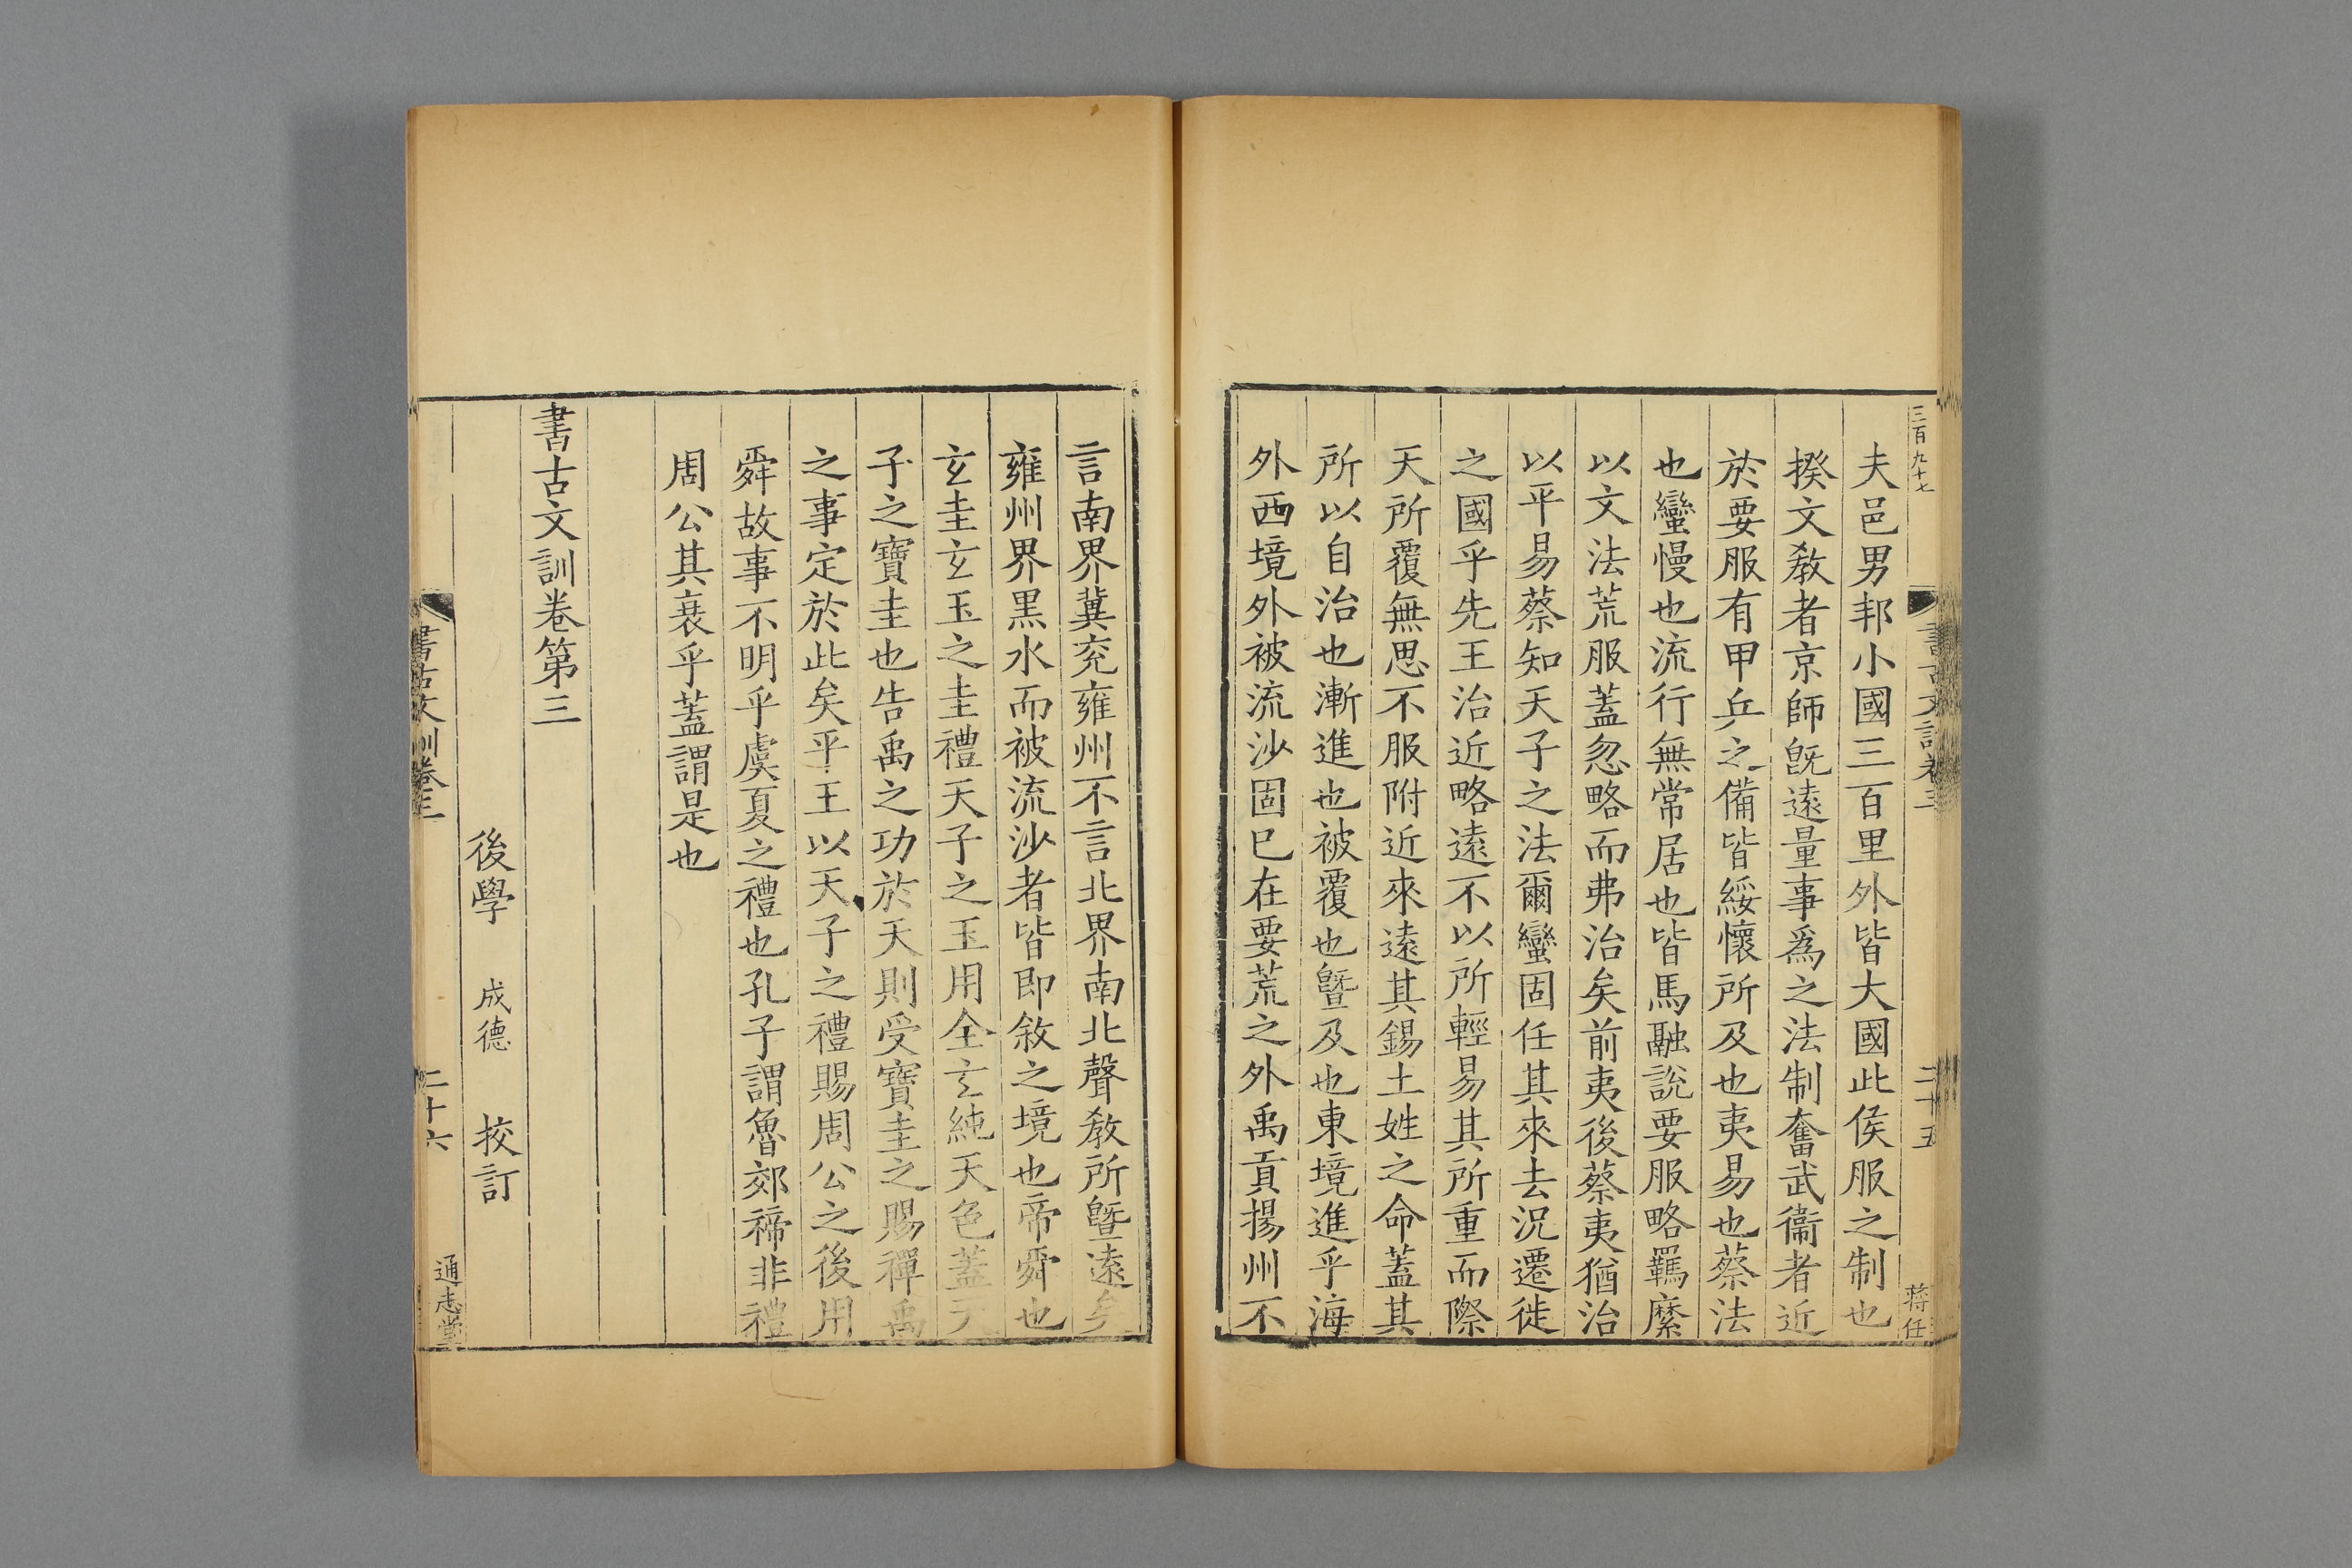 三百九十七
書古文訓卷三
二十五
蒋任
夫邑男邦小國三百里外皆大國此侯服之制也
揆文敎者京師旣遠量事爲之法制奮武衞者近
於要服有甲兵之備皆綏懷所及也夷易也蔡法
也蠻慢也流行無常居也皆馬融說要服略羈縻
以文法荒服蓋忽略而弗治矣前夷後蔡夷猶治
以平易蔡知天子之法爾蠻固任其來去況遷徙
之國乎先王治近略遠不以所輕易其所重而際
天所覆無思不服附近來遠其錫土姓之命蓋其
所以自治也漸進也被覆也曁及也東境進乎海
外西境外被流沙固已在要荒之外禹貢揚州不
言南界冀兖雍州不言北界南北聲敎所曁遠矣
雍州界黒水而被流沙者皆即敘之境也帝舜也
玄圭玄玉之圭禮天子之玉用全玄純天色蓋天
子之寶圭也告禹之功於天則受寶圭之賜禪禹
之事定於此矣平王以天子之禮賜周公之後用
舜故事不明乎虞夏之禮也孔子謂魯郊禘非禮
周公其衰乎蓋謂是也
書古文訓卷第三
後學 成德 挍訂
書古文訓卷三
二十六
通志堂